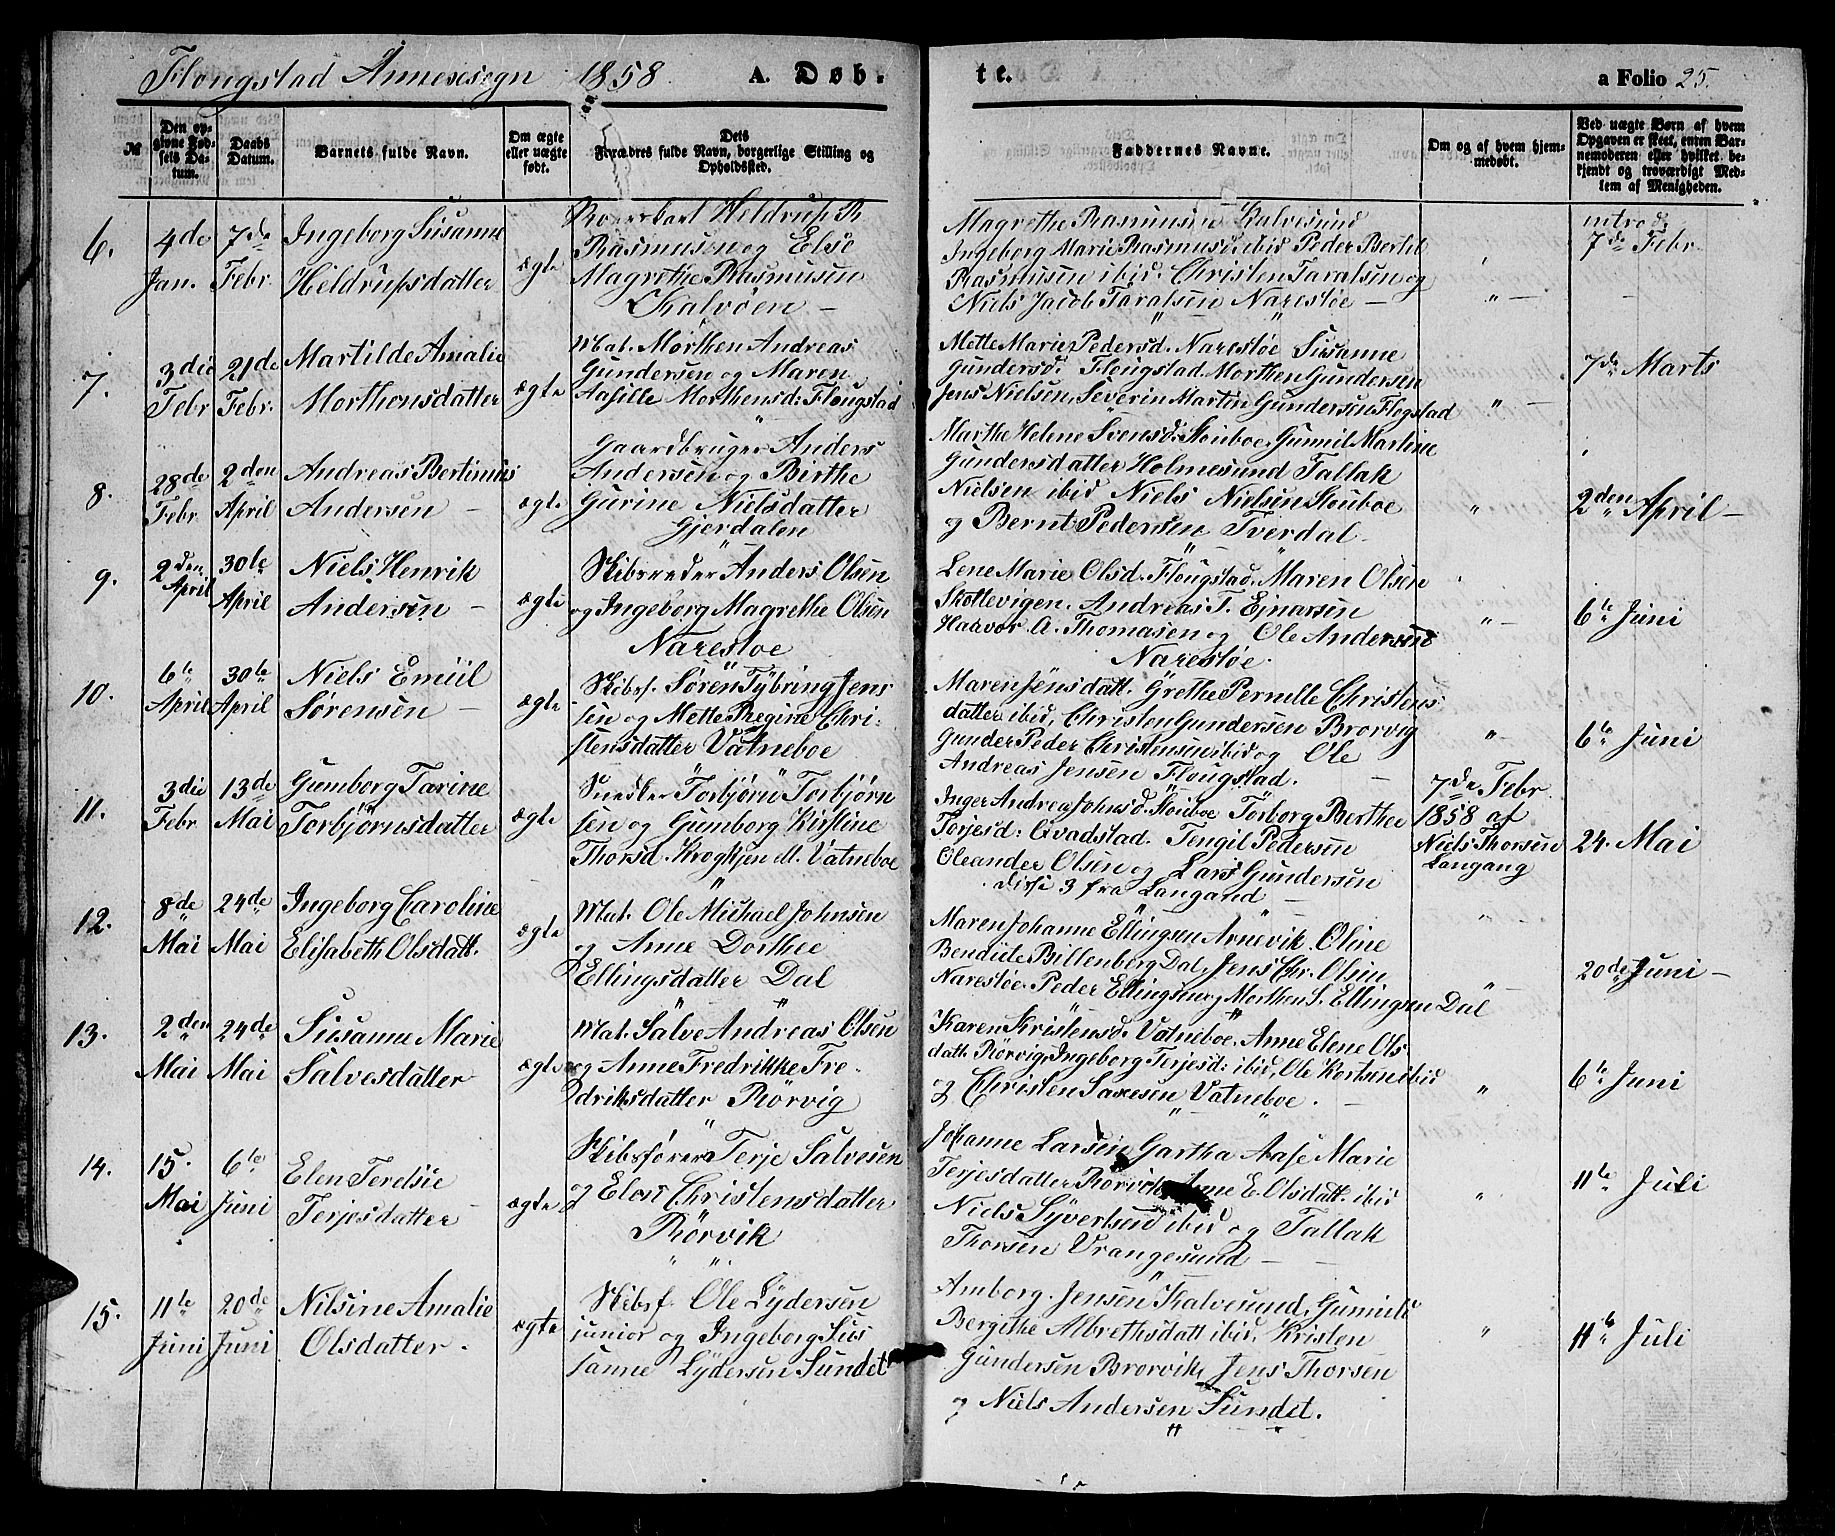 Flougstad Annexsogn 1858. A. Døb-
te. a Folio 25.
№
Den opgivne Fødsels Datum.
Daabs Datum.
Barnets fulde Navn.
Om ægte eller uægte født.
Dets Forældres fulde Navn, borgerlige Stilling og Opholdssted.
Faddernes Navne.
Om og af hvem hjemmedøbt.
Ved uægte Børn af hvem Opgaven er skeet, enten Barnemoderen eller hvilket bekjendt og troværdigt Medlem af Menigheden.
6.
4de Jan.
7de Febr.
Ingeborg Susanne
Heldrupsdatter
ægte
Heldrup R.
Rasmusen og Else
Magrethe Rasmusen
Kalvøen –
Magrethe Rasmusen Kalvesund
Ingeborg Marie Rasmusd. ibid Peder Bertel
Rasmusen ibid. Christen Taralsen og
Niels Jacob Taralsen Narestøe –
"
introd.
7de Febr.
7.
3die Febr
21de Febr.
Martilde Amalie
Morthensdatter
ægte
Mat. Morthen Andreas
Gundersen og Maren
Aasille Morthensd: Flougstad
Mette Marie Pedersd. Narestøe Susanne
Gundersd. Flougstad. Morthen Gundersen
Jens Nielsen, Severin Martin Gundersen Flogstad
"
7de Marts
8.
28de Febr.
2den April
Andreas Bertinius
Andersen –
ægte
Gaardbruger Anders
Andersen og Birthe
Gurine Nielsdatter
Gjerdalen
Marthe Helene Svensd. Stouboe, Gunnil Martine
Gundersdatter Holmesund Tallak
Nielsen ibid Niels Nielsen Stouboe
og Bernt Pedersen Tverdal.
"
2den April –
9.
2den April
30te April
Niels Henrik
Andersen –
ægte
Skibsreder Anders Olsen
og Ingeborg Magrethe Olsen
Narestoe
Lene Marie Olsd. Flougstad. Maren Olsen
Skottevigen. Andreas T. Ejnarsen
Haavor A. Thomasen og Ole Andersen
Narestøe.
"
6te Juni
10.
6te April
30te April
Niels Emiil
Sørensen –
ægte
Skibsf. Søren Tybring Jens
sen og Mette Regine Chri-
stensdatter Vatneboe
Maren Jensdatt. Grethe Pernille Christens
datter ibid, Christen Gundersen Brorvig
Gunder Peder Christensen ibid og Ole
Andreas Jensen Flougstad.
"
6te Juni
11.
3die Febr
13de Mai
Gumborg Tarine
Torbjørnsdatter
ægte
Snedker Torbjørn Torbjørn
sen og Gumborg Kirstine
Thorsd. Krogkjen. Vatneboe
Inger Andrea Johnsd. Stouboe Torborg Berthee
Torjesd: Qvadstad. Tengil Pedersen
Oleander Olsen og Lars Gundersen
disse 3 fra Langand –
7de Febr.
1858 af
Niels Thorsen
Langang
24. Mai
12.
8de Mai
24de Mai
Ingeborg Caroline
Elisabeth Olsdatt.
ægte
Mat. Ole Michael Johnsen
og Anne Dorthee
Ellingsdatter Dal
Maren Johanne Ellingsen Arnevik. Oline
Bendicte Billenberg Dal, Jens Chr. Olsen
Narestøe. Peder Ellingsen og Morthen S. Ellingsen Dal
"
20de Juni –
13.
2den Mai
24de Mai
Susanne Marie
Salvesdatter
ægte
Mat. Salve Andreas Olsen
og Anne Fredrikke Fre-
driksdatter Rörvig
Karen Kristensd. Vatneboe, Anne Elene Ols
datt. Rörvig, Ingeborg Terjesd: ibid, Ole Kortsen ibid
og Christen Saxesen Vatneboe. –
"
6te Juni
14.
15. Mai
6te Juni
Elen Terelsie
Terjesdatter
ægte
Skibsfører Terje Salvesen
og Elen Christensdatter
Rörvik
Johanne Larsen Gartha Aase Marie
Terjesdatter Rörvik Anne E. Olsdatt. ibid
Niels Syvertsen ibid og Tallak
Thorsen Vrangesund –
"
11te Juli
15.
11te Juni
20de Juni
Nilsine Amalie
Olsdatter.
ægte
Skibsf. Ole Lydersen
junior og Ingeborg Sus
sanne Lydersen Sundet
Amborg Jensen Kalvesund, Gunnild
Bergithe Albrethsdatt ibid, Kristen
Gundersen Brorvik, Jens Thorsen
og Niels Andersen Sundet.
"
11te Juli